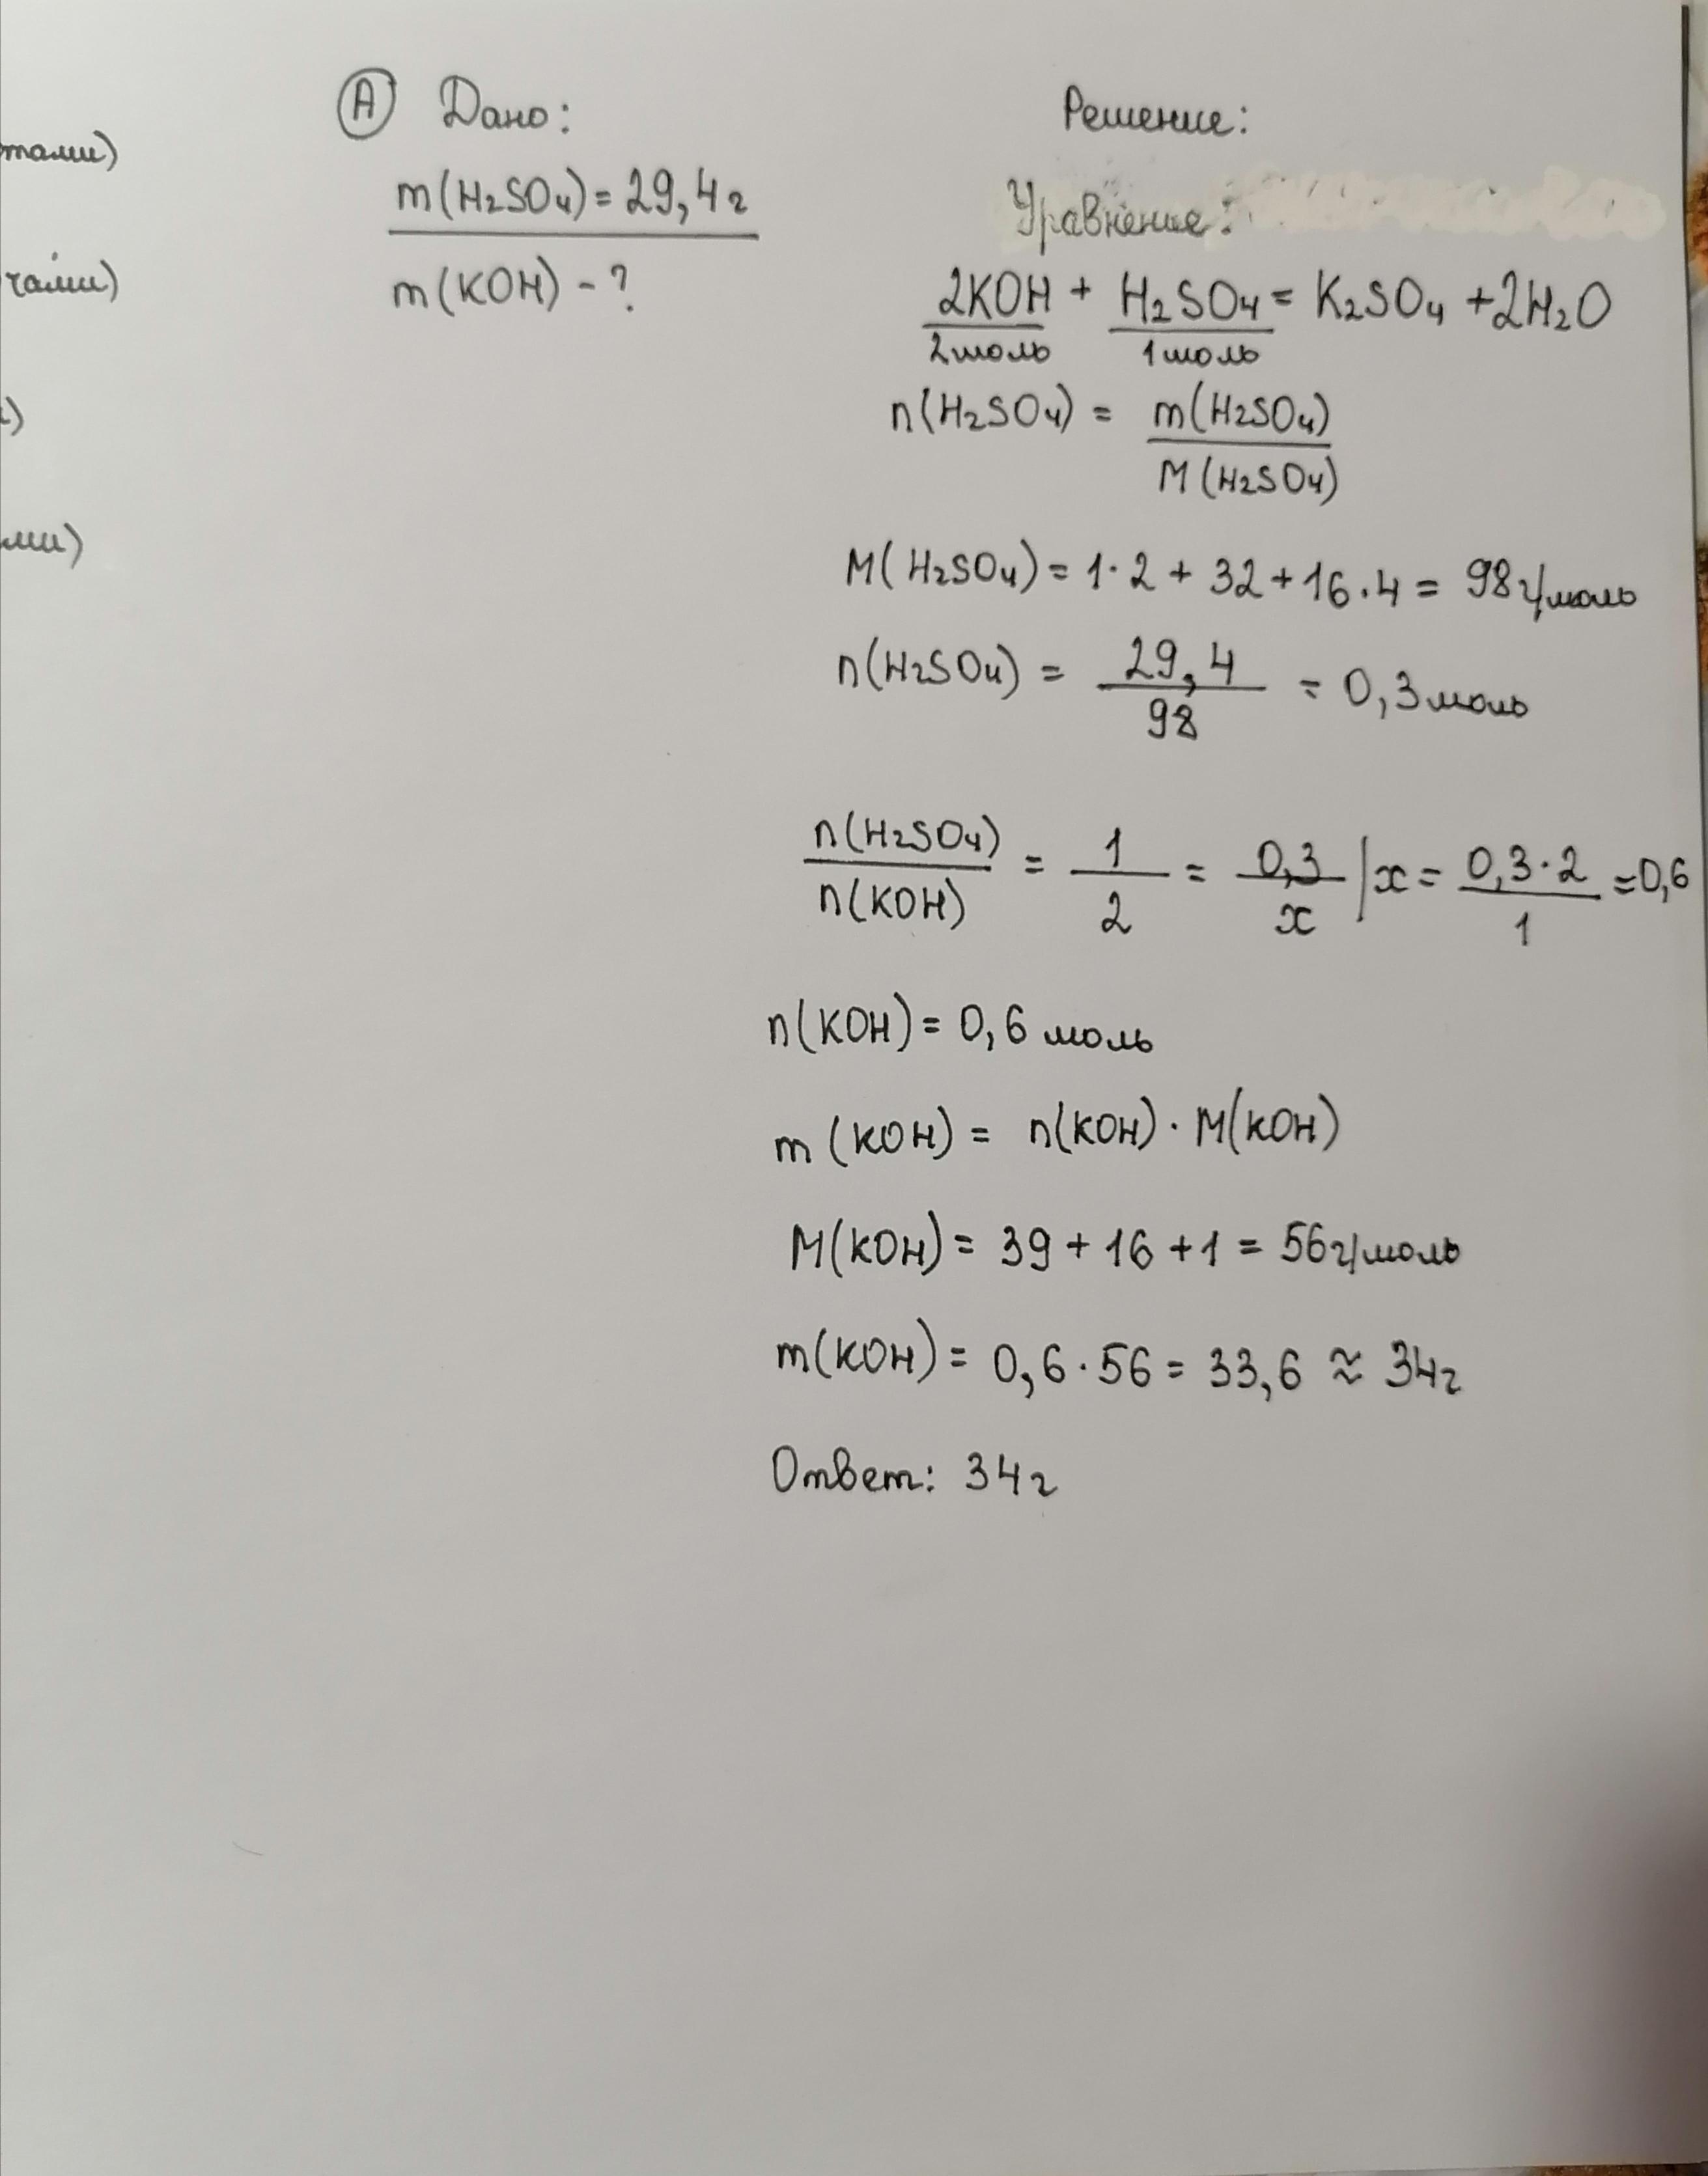 тами)
чами)
ми)
А Дано:
m(H₂SO₄) = 29,4г
m(KOH) - ?
Решение:
Уравнение:
2KOH + H₂SO₄ = K₂SO₄ + 2H₂O
2моль 1моль
n(H₂SO₄) = m(H₂SO₄)
M(H₂SO₄)
M(H₂SO₄) = 1·2 + 32 + 16·4 = 98г/моль
n(H₂SO₄) = 29,4 / 98 = 0,3моль
n(H₂SO₄) / n(KOH) = 1/2 = 0,3/x | x = 0,3·2 / 1 = 0,6
n(KOH) = 0,6 моль
m(KOH) = n(KOH) · M(KOH)
M(KOH) = 39 + 16 + 1 = 56г/моль
m(KOH) = 0,6·56 = 33,6 ≈ 34г
Ответ: 34г